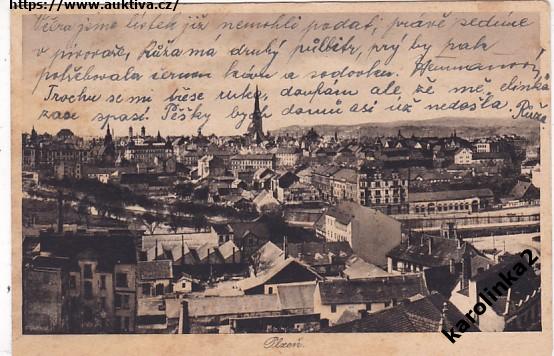 https://www.auktiva.cz/
Včera jsme lístek již nemohli podat, právě sedíme
v pivovaře, Růža má druhý půlbitr, prý by pak
potřebovala černou kávu a sodovku.
Trochu se mi třese ruka, doufám ale že mě, 
zase spasí. Pěšky bych domů asi už nedošla. Růža
Plzeň.
karolinka2